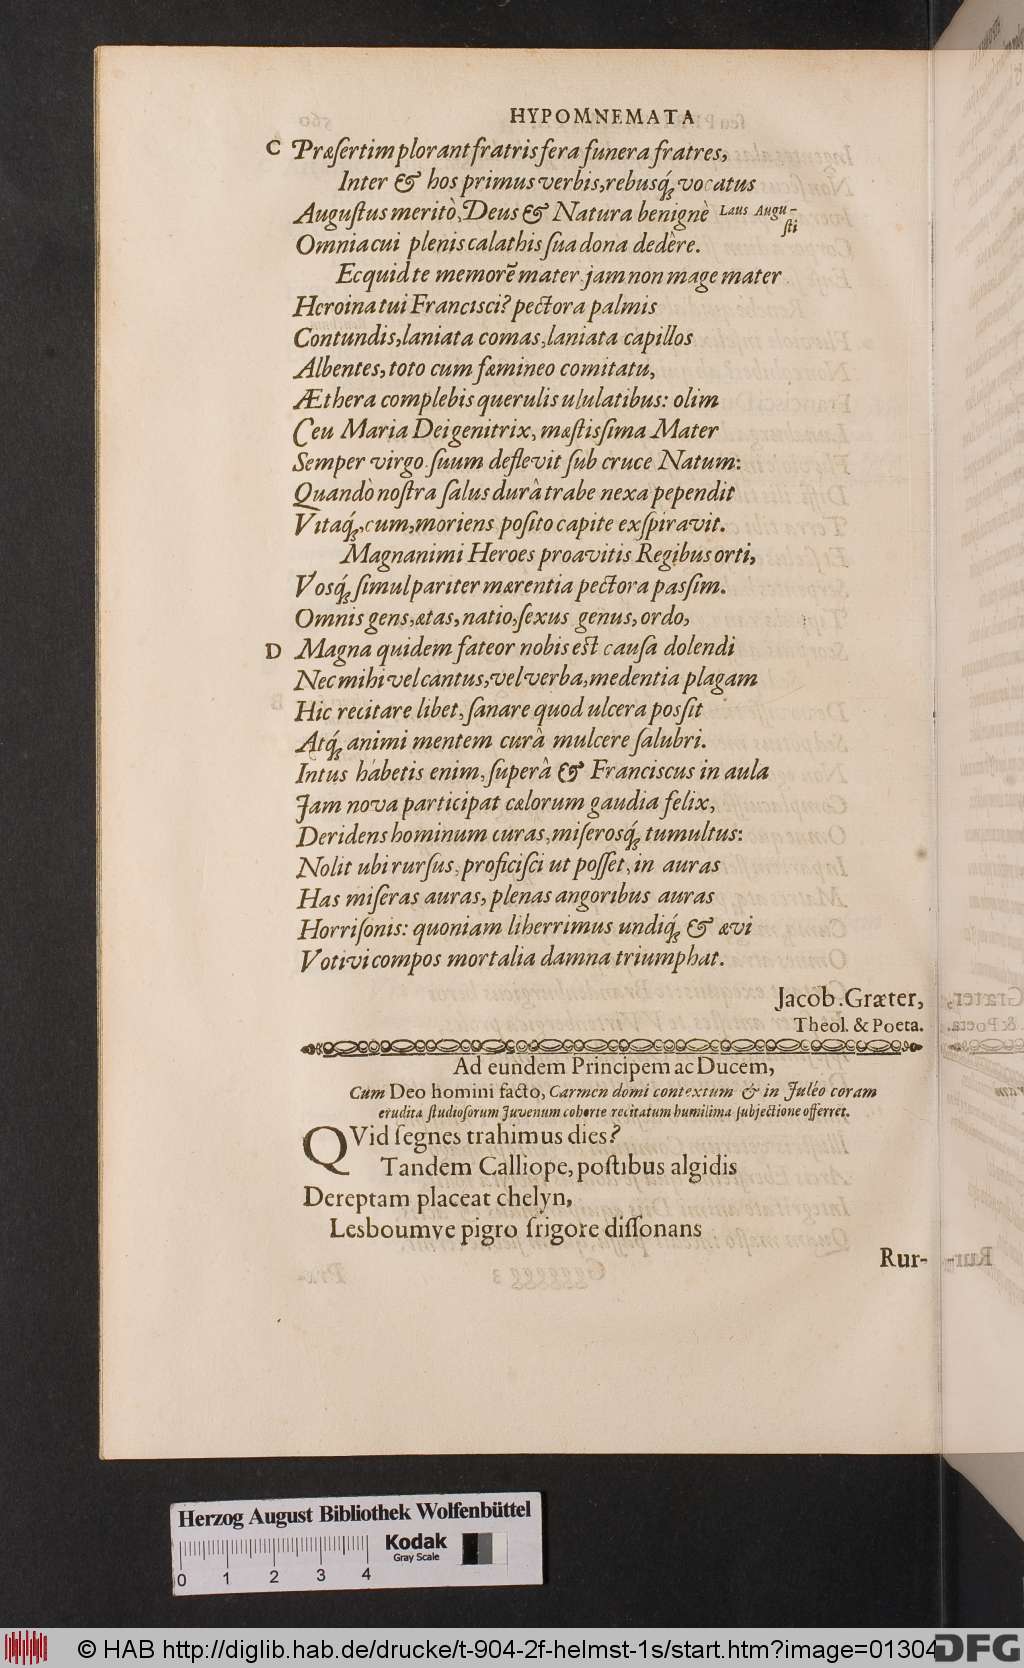 HYPOMNEMATA
C Præſertim plorant fratris fera funera fratres,
Inter & hos primus verbis, rebusq́; vocatus
Auguſtus meritò, Deus & Natura benignè Laus Augu-
ſti
Omnia cui plenis calathis ſua dona dedêre.
Ecquid te memorẽ mater jam non mage mater
Heroina tui Francisci? pectora palmis
Contundis, laniata comas, laniata capillos
Albentes, toto cum fæmineo comitatu,
Æthera complebis querulis ululatibus: olim
Ceu Maria Deigenitrix, mæſtisſima Mater
Semper virgo ſuum deflevit ſub cruce Natum:
Quandò noſtra ſalus durâ trabe nexa pependit
Vitaq́;, cum, moriens poſito capite exſpiravit.
Magnanimi Heroes proavitis Regibus orti,
Vosq́; ſimul pariter mærentia pectora pasſim.
Omnis gens, ætas, natio, ſexus genus, ordo,
D Magna quidem fateor nobis eſt cauſa dolendi
Nec mihi vel cantus, vel verba, medentia plagam
Hic recitare libet, ſanare quod ulcera posſit
Atq́; animi mentem curâ mulcere ſalubri.
Intus habetis enim, ſuperâ & Franciscus in aula
Jam nova participat cælorum gaudia felix,
Deridens hominum curas, miſerosq́; tumultus:
Nolit ubi rurſus, proficiſci ut poſſet, in auras
Has miſeras auras, plenas angoribus auras
Horriſonis: quoniam liherrimus undiq́; & ævi
Votivi compos mortalia damna triumphat.
Jacob. Græter,
Theol. & Poeta.
Ad eundem Principem ac Ducem,
Cum Deo homini facto, Carmen domi contextum & in Juléo coram
erudita ſtudioſorum Juvenum cohorte recitatum humilima ſubjectione offerret.
QVid ſegnes trahimus dies?
Tandem Calliope, poſtibus algidis
Dereptam placeat chelyn,
Lesboumve pigro frigore diſſonans
Rur-
Herzog August Bibliothek Wolfenbüttel
Kodak
Gray Scale
0 1 2 3 4
© HAB http://diglib.hab.de/drucke/t-904-2f-helmst-1s/start.htm?image=01304
DFG